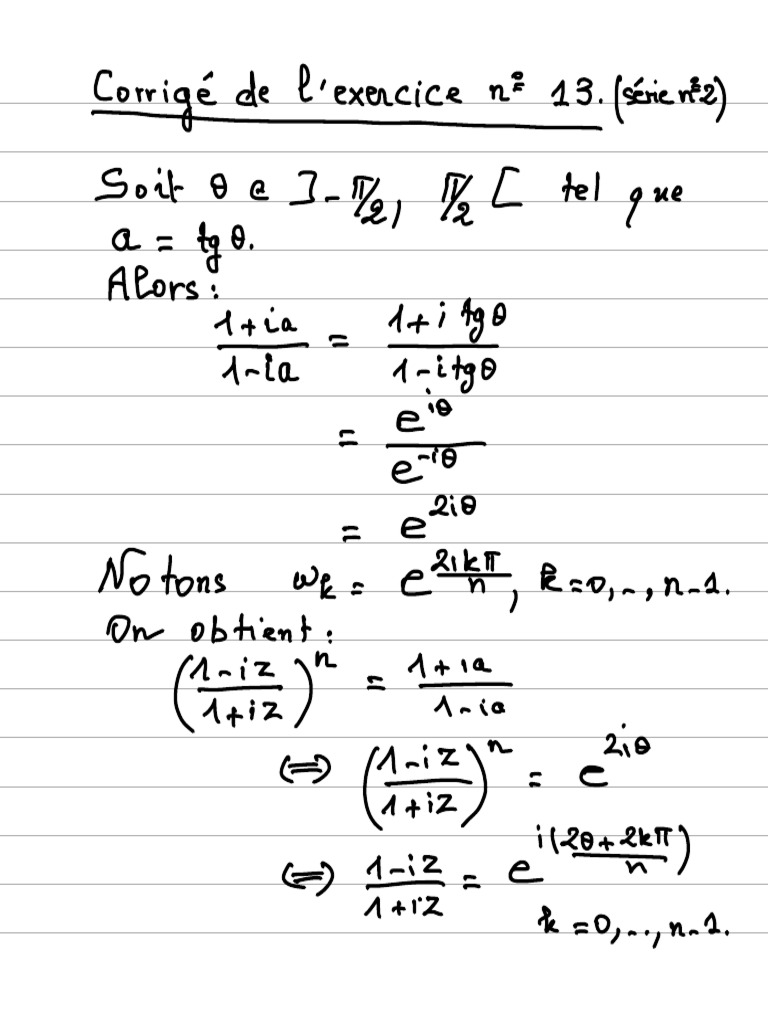 Corrigé de l'exercice n° 13. (série n°2)
Soit θ ∈ ]-π/2, π/2[ tel que
a = tg θ.
Alors :
(1+ia)/(1-ia) = (1+i tgθ)/(1-i tgθ)
= e^{iθ}/e^{-iθ}
= e^{2iθ}
Notons ω_k = e^{2ikπ/n}, k=0,..,n-1.
On obtient :
((1-iz)/(1+iz))^n = (1+ia)/(1-ia)
⟺ ((1-iz)/(1+iz))^n = e^{2iθ}
⟺ (1-iz)/(1+iz) = e^{i((2θ+2kπ)/n)}
k=0,..,n-1.